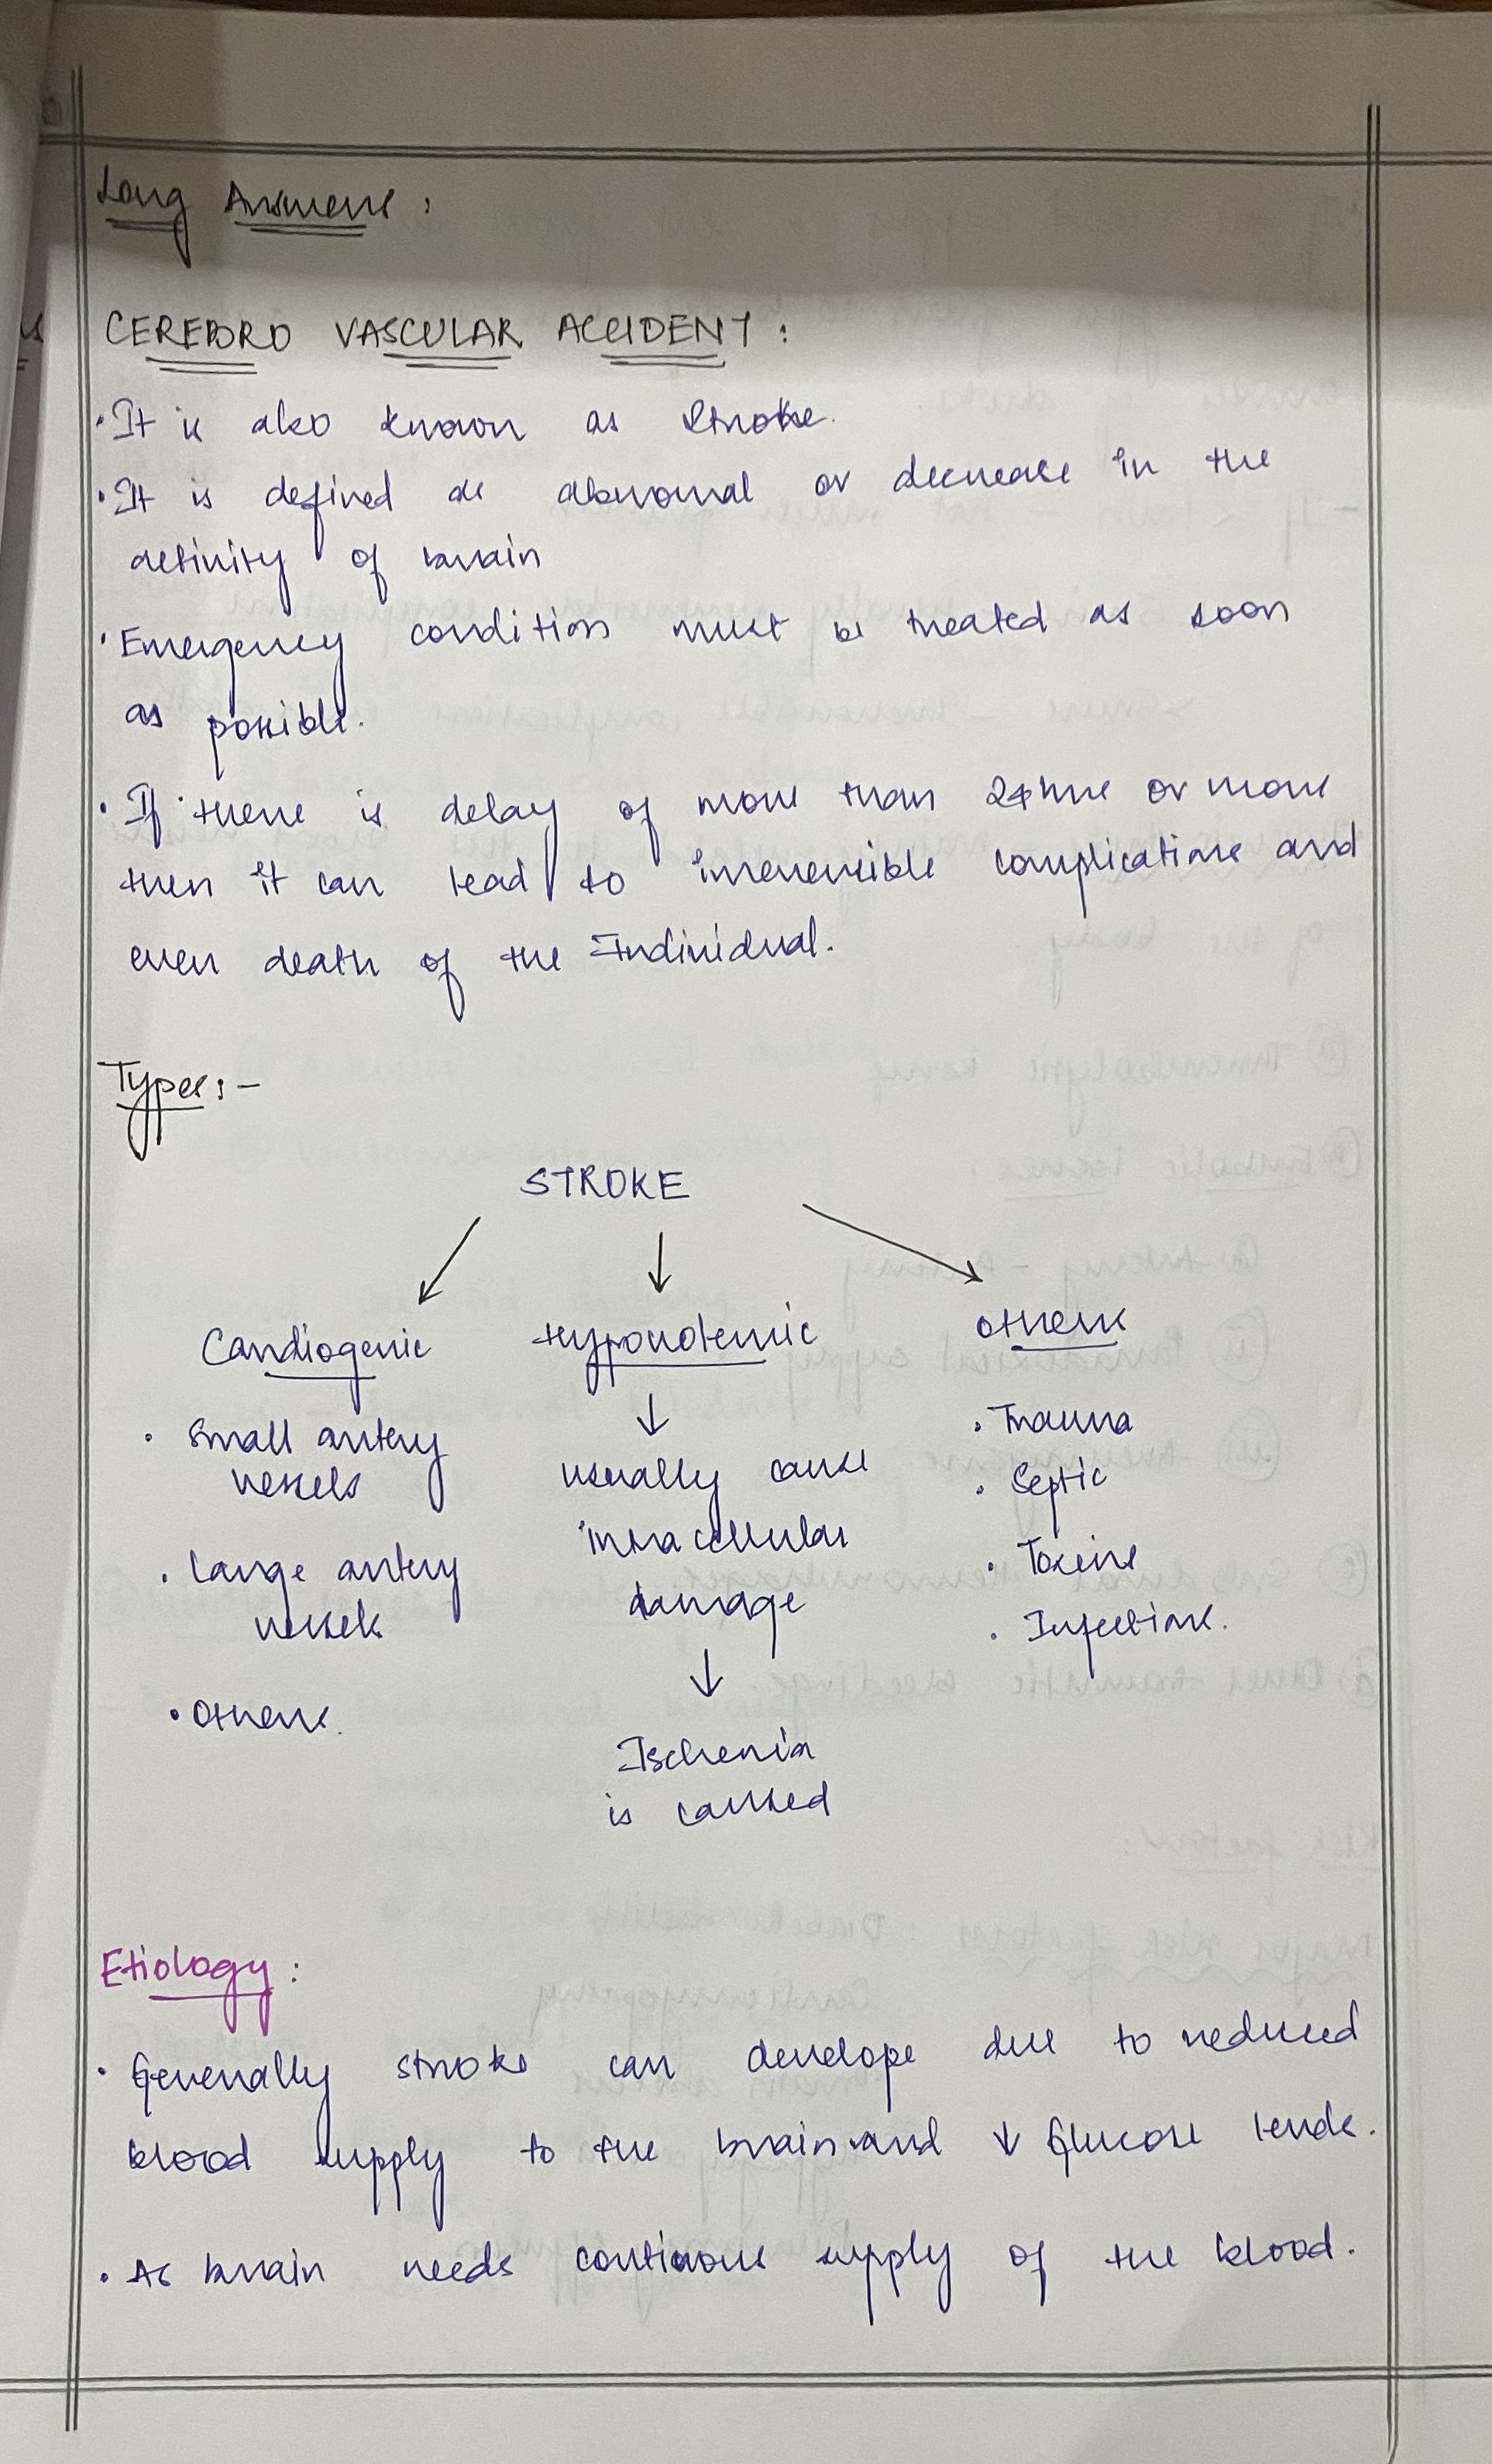 Long Answers :
CEREBRO VASCULAR ACCIDENT :
• It is also known as Stroke.
• It is defined as abnormal or decrease in the
activity of brain
• Emergency condition must be treated as soon
as possible.
• If there is delay of more than 24hrs or more
then it can lead to irreversible complications and
even death of the Individual.
Types :-
STROKE
Cardiogenic
• Small artery
vessels
• Large artery
vessels
• Others.
Hypovolemic
usually cause
intracellular
damage
Ischemia
is caused
Others
• Trauma
• Septic
• Toxins
• Infections.
Etiology :
• Generally stroke can develope due to reduced
blood supply to the brain and ↓ Glucose levels.
• As brain needs continous supply of the blood.